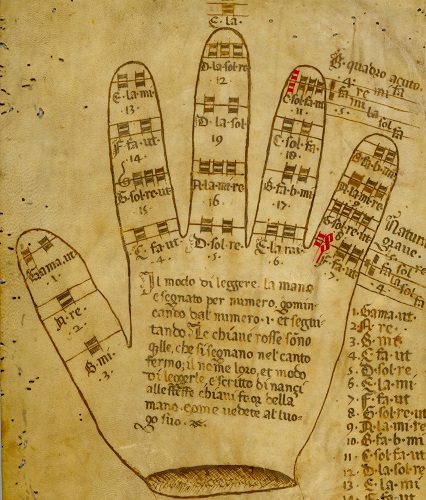 E. la.
D. la. sol. re.
12.
E. la. mi.
13.
F. fa. ut.
14.
G. sol. re. ut
15.
C. fa. ut
4.
D. la. sol
19
A. la. mi. re.
16.
D. sol. re.
5.
C. sol. fa. ut
11
C. sol. fa.
18.
B. fa. b. mi
17
E. la. mi
6.
B. quadro acuto.
4.
fa. re mi fa
5. mi la sol
fa
B. fa. b. mi
A. la. mi. re.
G. sol. re. ut
8
F. fa. ut
7
Natura
grave.
5. sol re
la sol
4.
Gama. ut.
1.
A. re.
2.
B. mi
3.
Il modo di leggere la mano
e segnato per numero, gomin
cando dal numero .1. et segui
tando. Le chiave rosse sono
qlle, che si segnano nel canto
fermo, il nome loro, et modo
di leggerle, e scritto di nanci
alle stesse chiavi fuor della
mano, come vedete al luo-
go suo.
1. Gama. ut.
2. A. re.
3. B. mi
4. C. fa. ut
5. D. sol. re
6. E. la. mi
7. F. fa. ut
8. G. sol. re. ut
9. A. la. mi. re
10. B. fa. b. mi
11. C. sol fa ut
12. D. la. sol re
13. E. la. mi
14. F. fa. ut